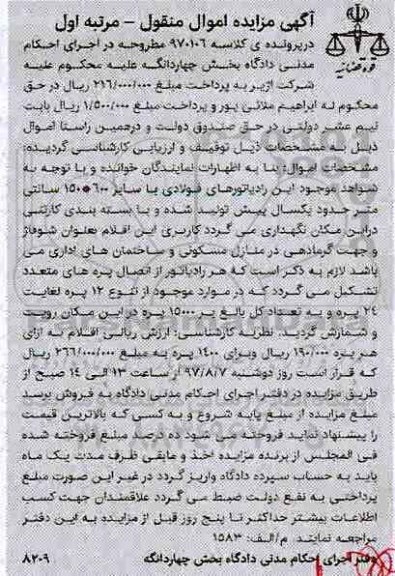 آگهی مزایده اموال منقول – مرتبه اول
درپرونده ی کلاسه ۹۷۰۱۰۶ مطروحه در اجرای احکام
مدنی دادگاه بخش چهاردانگه علیه محکوم علیه
شرکت اژیر به پرداخت مبلغ ۲۱۶/۰۰۰/۰۰۰ ریال در حق
محکوم له ابراهیم ملائی پور و پرداخت مبلغ ۱/۵۰۰/۰۰۰ ریال بابت
نیم عشر دولتی در حق صندوق دولت و درهمین راستا اموال
ذیل به مشخصات ذیل توقیف و ارزیابی کارشناسی گردیده:
مشخصات اموال: بنا به اظهارات نمایندگان خوانده و با توجه به
شواهد موجود این رادیاتورهای فولادی با سایز ۶۰۰*۱۵۰ سانتی
متر حدود یکسال پیش تولید شده و با بسته بندی کارتنی
دراین مکان نگهداری می گردد کاربری این اقلام بعنوان شوفاژ
و جهت گرمادهی در منازل مسکونی و ساختمان های اداری می
باشد لازم به ذکر است که هر رادیاتور از اتصال پره های متعدد
تشکیل می گردد که در موارد موجود از تنوع ۱۲ پره لغایت
۲۴ پره و به تعداد کل بالغ بر ۱۵۰۰۰ پره در این مکان رویت
و شمارش گردید. نظریه کارشناسی: ارزش ریالی اقلام به ازای
هر پره ۱۹۰/۰۰۰ ریال وبرای ۱۴۰۰ پره به مبلغ ۲۶۶/۰۰۰/۰۰۰ ریال
که قرار است روز دوشنبه ۹۷/۸/۷ از ساعت ۱۳ الی ۱۴ صبح از
طریق مزایده در دفتر اجرای احکام مدنی دادگاه به فروش برسد
مبلغ مزایده از مبلغ پایه شروع و به کسی که بالاترین قیمت
را پیشنهاد نماید فروخته می شود ده درصد مبلغ فروخته شده
فی المجلس از برنده مزایده اخذ و مابقی ظرف مدت یک ماه
باید به حساب سپرده دادگاه واریز گردد در غیر این صورت مبلغ
پرداختی به نفع دولت ضبط می گردد علاقمندان جهت کسب
اطلاعات بیشتر حداکثر تا پنج روز قبل از مزایده به این دفتر
مراجعه نمایند. م/الف: ۱۵۸۳
دفتر اجرای احکام مدنی دادگاه بخش چهاردانگه ۸۲۰۹
قوه قضائیه